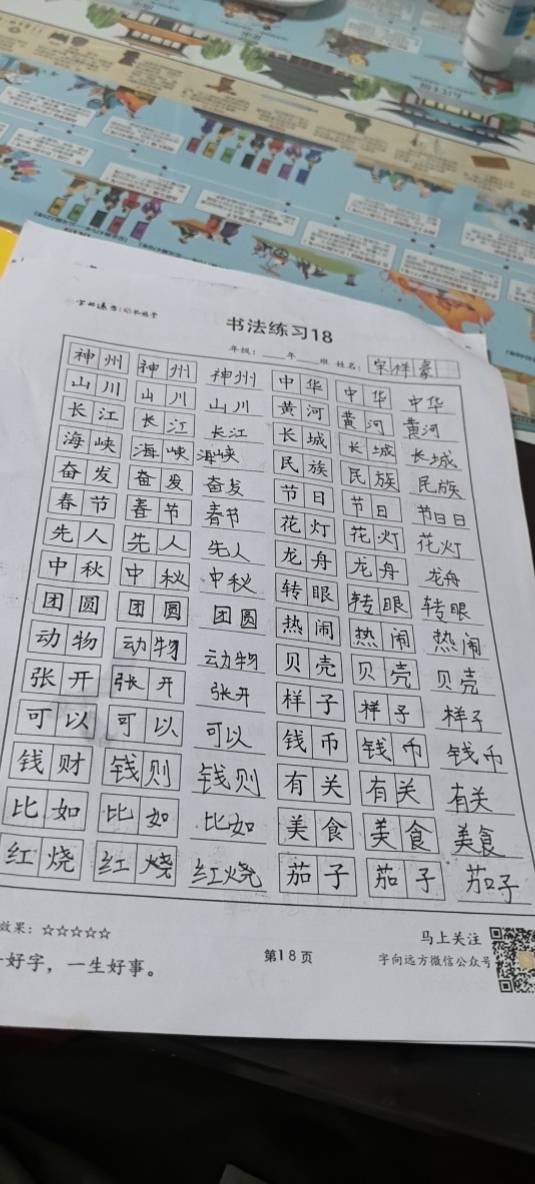 书法练习18
年级：____年____班 姓名：宋祥豪
神州 神州 神州 中华 中华 中华
山川 山川 山川 黄河 黄河 黄河
长江 长江 长江 长城 长城 长城
海峡 海峡 海峡 民族 民族 民族
奋发 奋发 奋发 节日 节日 节日日
春节 春节 春节 花灯 花灯 花灯
先人 先人 先人 龙舟 龙舟 龙舟
中秋 中秋 中秋 转眼 转眼 转眼
团圆 团圆 团圆 热闹 热闹 热闹
动物 动物 动物 贝壳 贝壳 贝壳
张开 张开 张开 样子 样子 样子
可以 可以 可以 钱币 钱币 钱币
钱财 钱则 钱则 有关 有关 有关
比如 比如 比如 美食 美食 美食
红烧 红烧 红烧 茄子 茄子 茄子
效果：☆☆☆☆☆
好字，一生好事。
第18页
马上关注
字向远方微信公众号